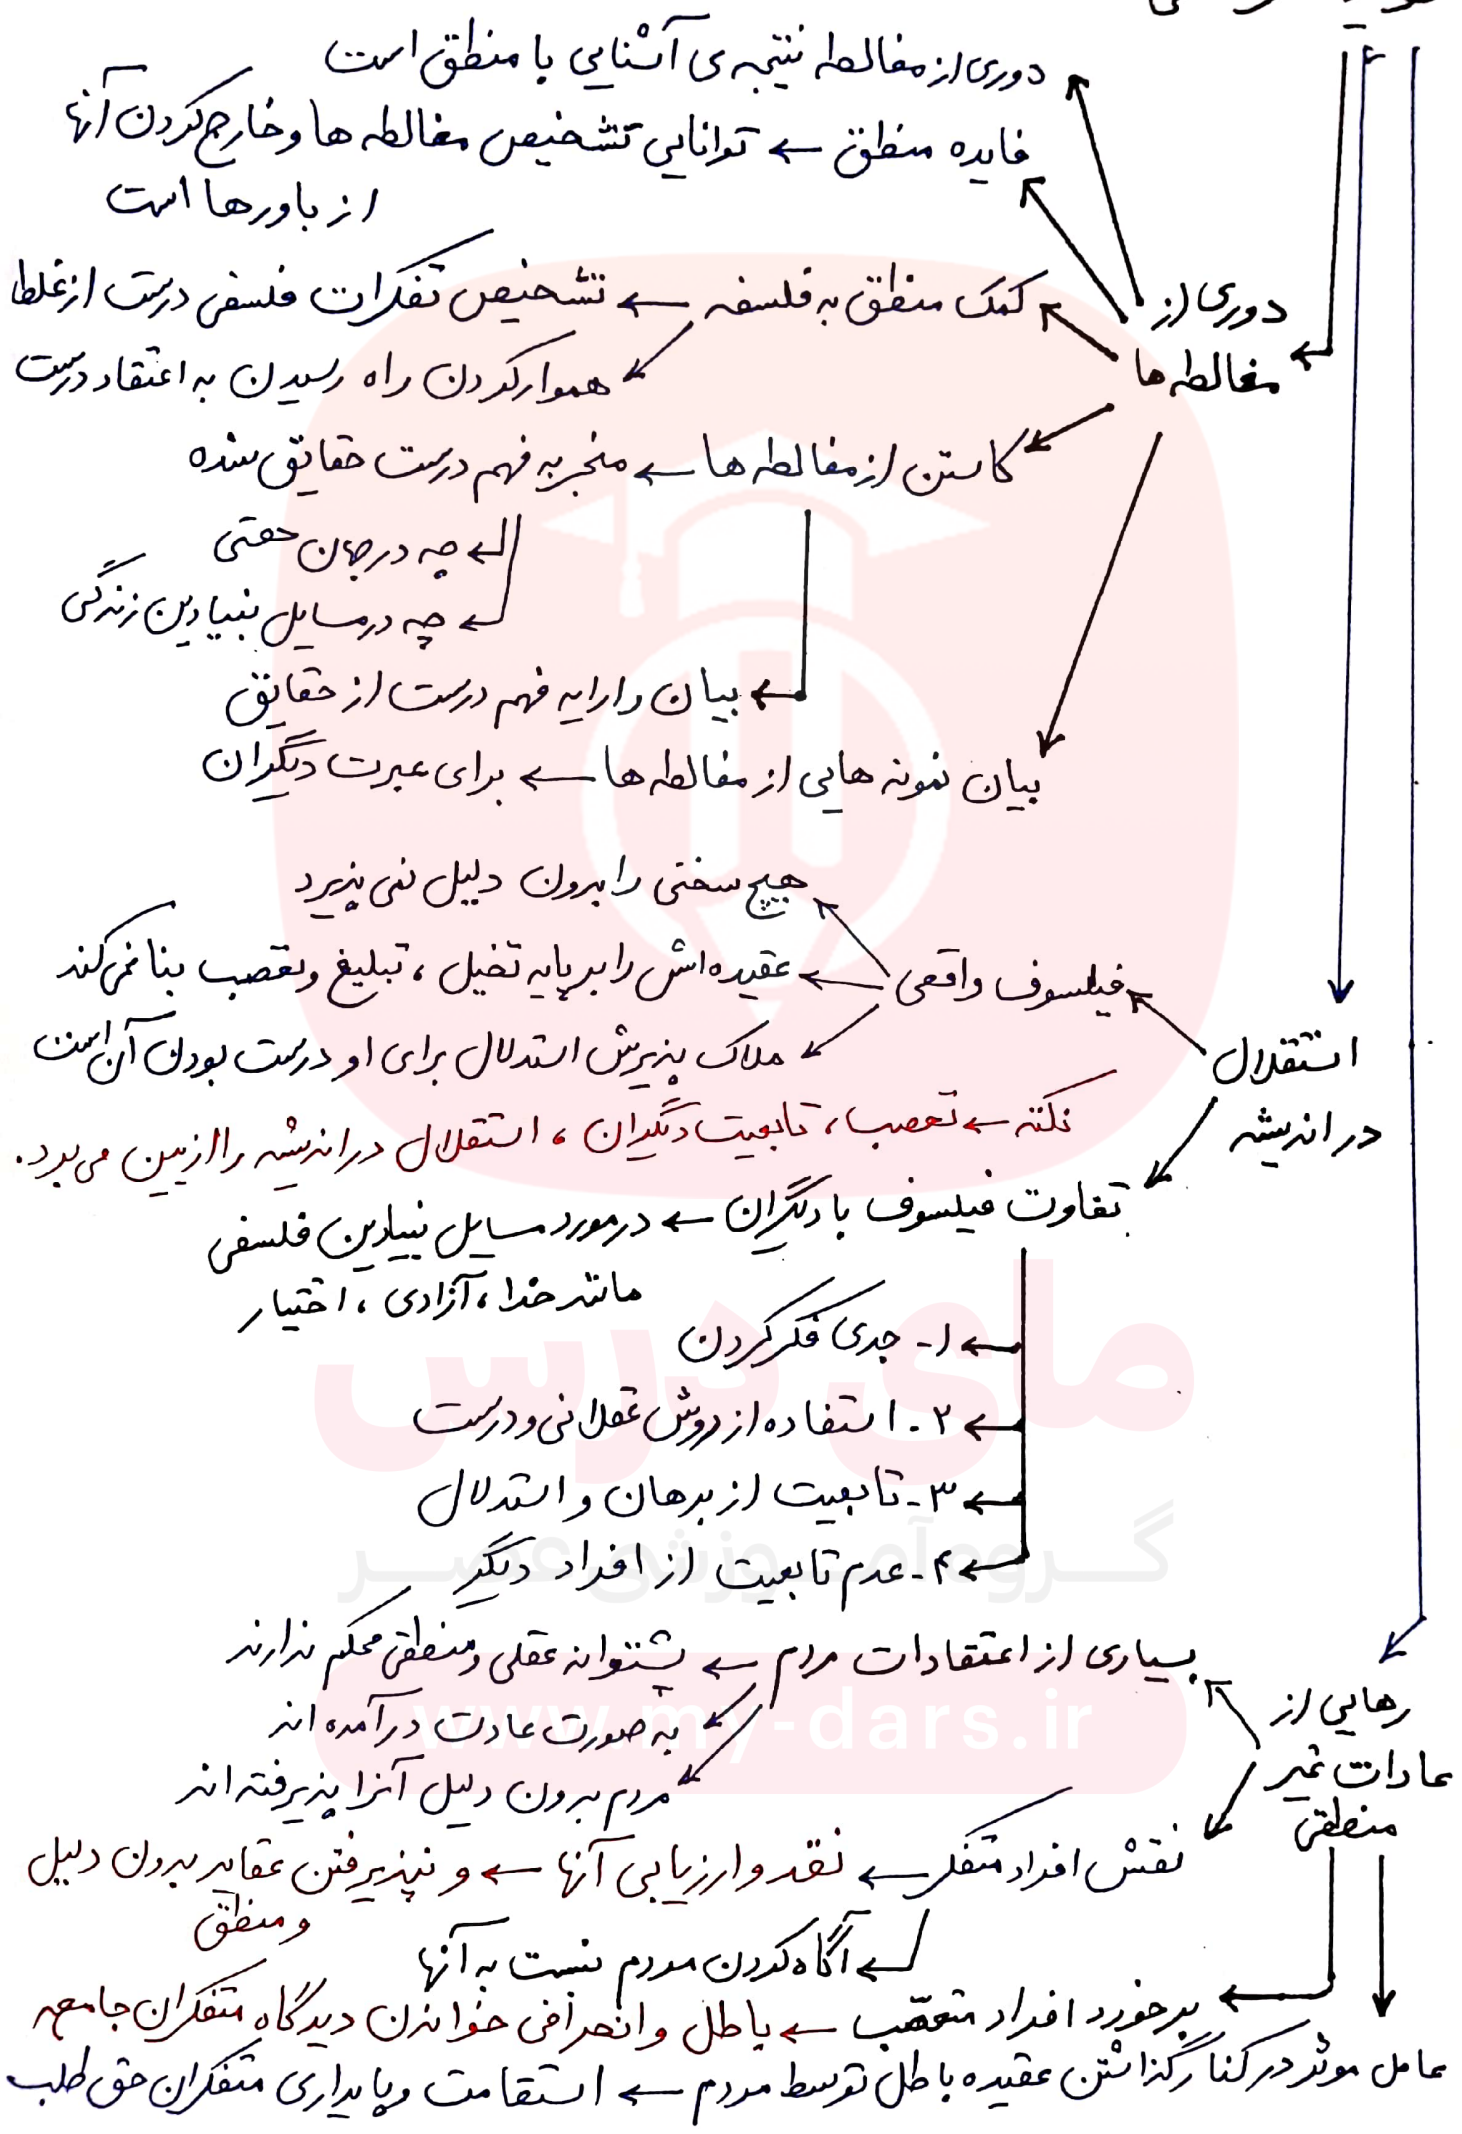 دوری از مغالطه نتیجه ی آشنایی با منطق است
فایده منطق ← توانایی تشخیص مغالطه ها و خارج کردن آنها
از باورها است
دوری از
مغالطه ها
کمک منطق به فلسفه ← تشخیص تفکرات فلسفی درست از غلط
هموار کردن راه رسیدن به اعتقاد درست
کاستن از مغالطه ها ← منجر به فهم درست حقایق شده
← چه در جهان هستی
← چه در مسایل بنیادین زندگی
← بیان و ارایه فهم درست از حقایق
بیان نمونه هایی از مغالطه ها ← برای عبرت دیگران
استقلال
در اندیشه
هیچ سخنی را بدون دلیل نمی پذیرد
فیلسوف واقعی ← عقیده اش را بر پایه تخیل ، تبلیغ و تعصب بنا نمی کند
ملاک پذیرش استدلال برای او درست بودن آن است
نکته ← تعصب ، تابعیت دیگران ، استقلال در اندیشه را از بین می برد.
تفاوت فیلسوف با دیگران ← در مورد مسایل بنیادین فلسفی
مانند خدا ، آزادی ، اختیار
← ۱- جدی فکر کردن
← ۲- استفاده از روش عقلانی و درست
← ۳- تابعیت از برهان و استدلال
← ۴- عدم تابعیت از افراد دیگر
رهایی از
عادات غیر
منطقی
بسیاری از اعتقادات مردم ← پشتوانه عقلی و منطقی محکم ندارند
به صورت عادت درآمده اند
مردم بدون دلیل آنرا پذیرفته اند
نقش افراد متفکر ← نقد و ارزیابی آنها ← و نپذیرفتن عقاید بدون دلیل
و منطق
← آگاه کردن مردم نسبت به آنها
برخورد افراد متعصّب ← باطل و انحرافی خواندن دیدگاه متفکران جامعه
عامل موثر در کنار گذاشتن عقیده باطل توسط مردم ← استقامت و پایداری متفکران حق طلب
مای درس
گروه آموزشی عصر
www.my-dars.ir